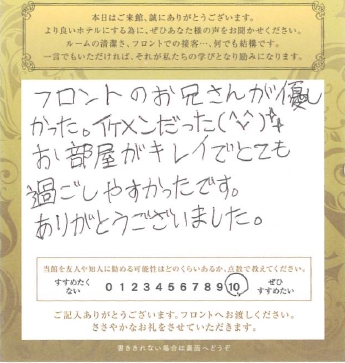 本日はご来館、誠にありがとうございます。
より良いホテルにする為に、ぜひあなた様の声をお聞かせください。
ルームの清潔さ、フロントでの接客…、何でも結構です。
一言でもいただければ、それが私たちの学びとなり励みになります。
フロントのお兄さんが優し
かった。イケメンだった(^^)
お部屋がキレイでとても
過ごしやすかったです。
ありがとうございました。
当館を友人や知人に勧める可能性はどのくらいあるか、点数で教えてください。
すすめたく
ない
0 1 2 3 4 5 6 7 8 9 10
ぜひ
すすめたい
ご記入ありがとうございます。フロントへお渡しください。
ささやかなお礼をさせていただきます。
書ききれない場合は裏面へどうぞ